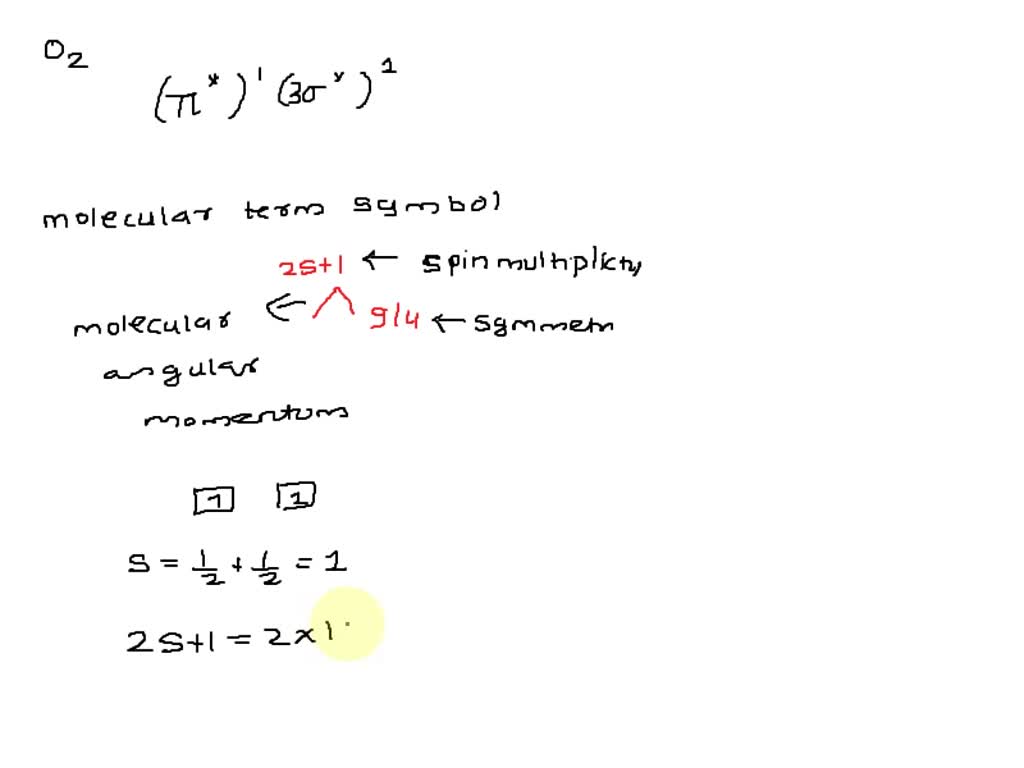 O₂
(π*)¹ (3σ*)¹
molecular term symbol
2S+1 ← spin multiplicity
molecular ← Λ g/u ← symmetry
angular
momentum
1 1
S = 1/2 + 1/2 = 1
2S+1 = 2×1